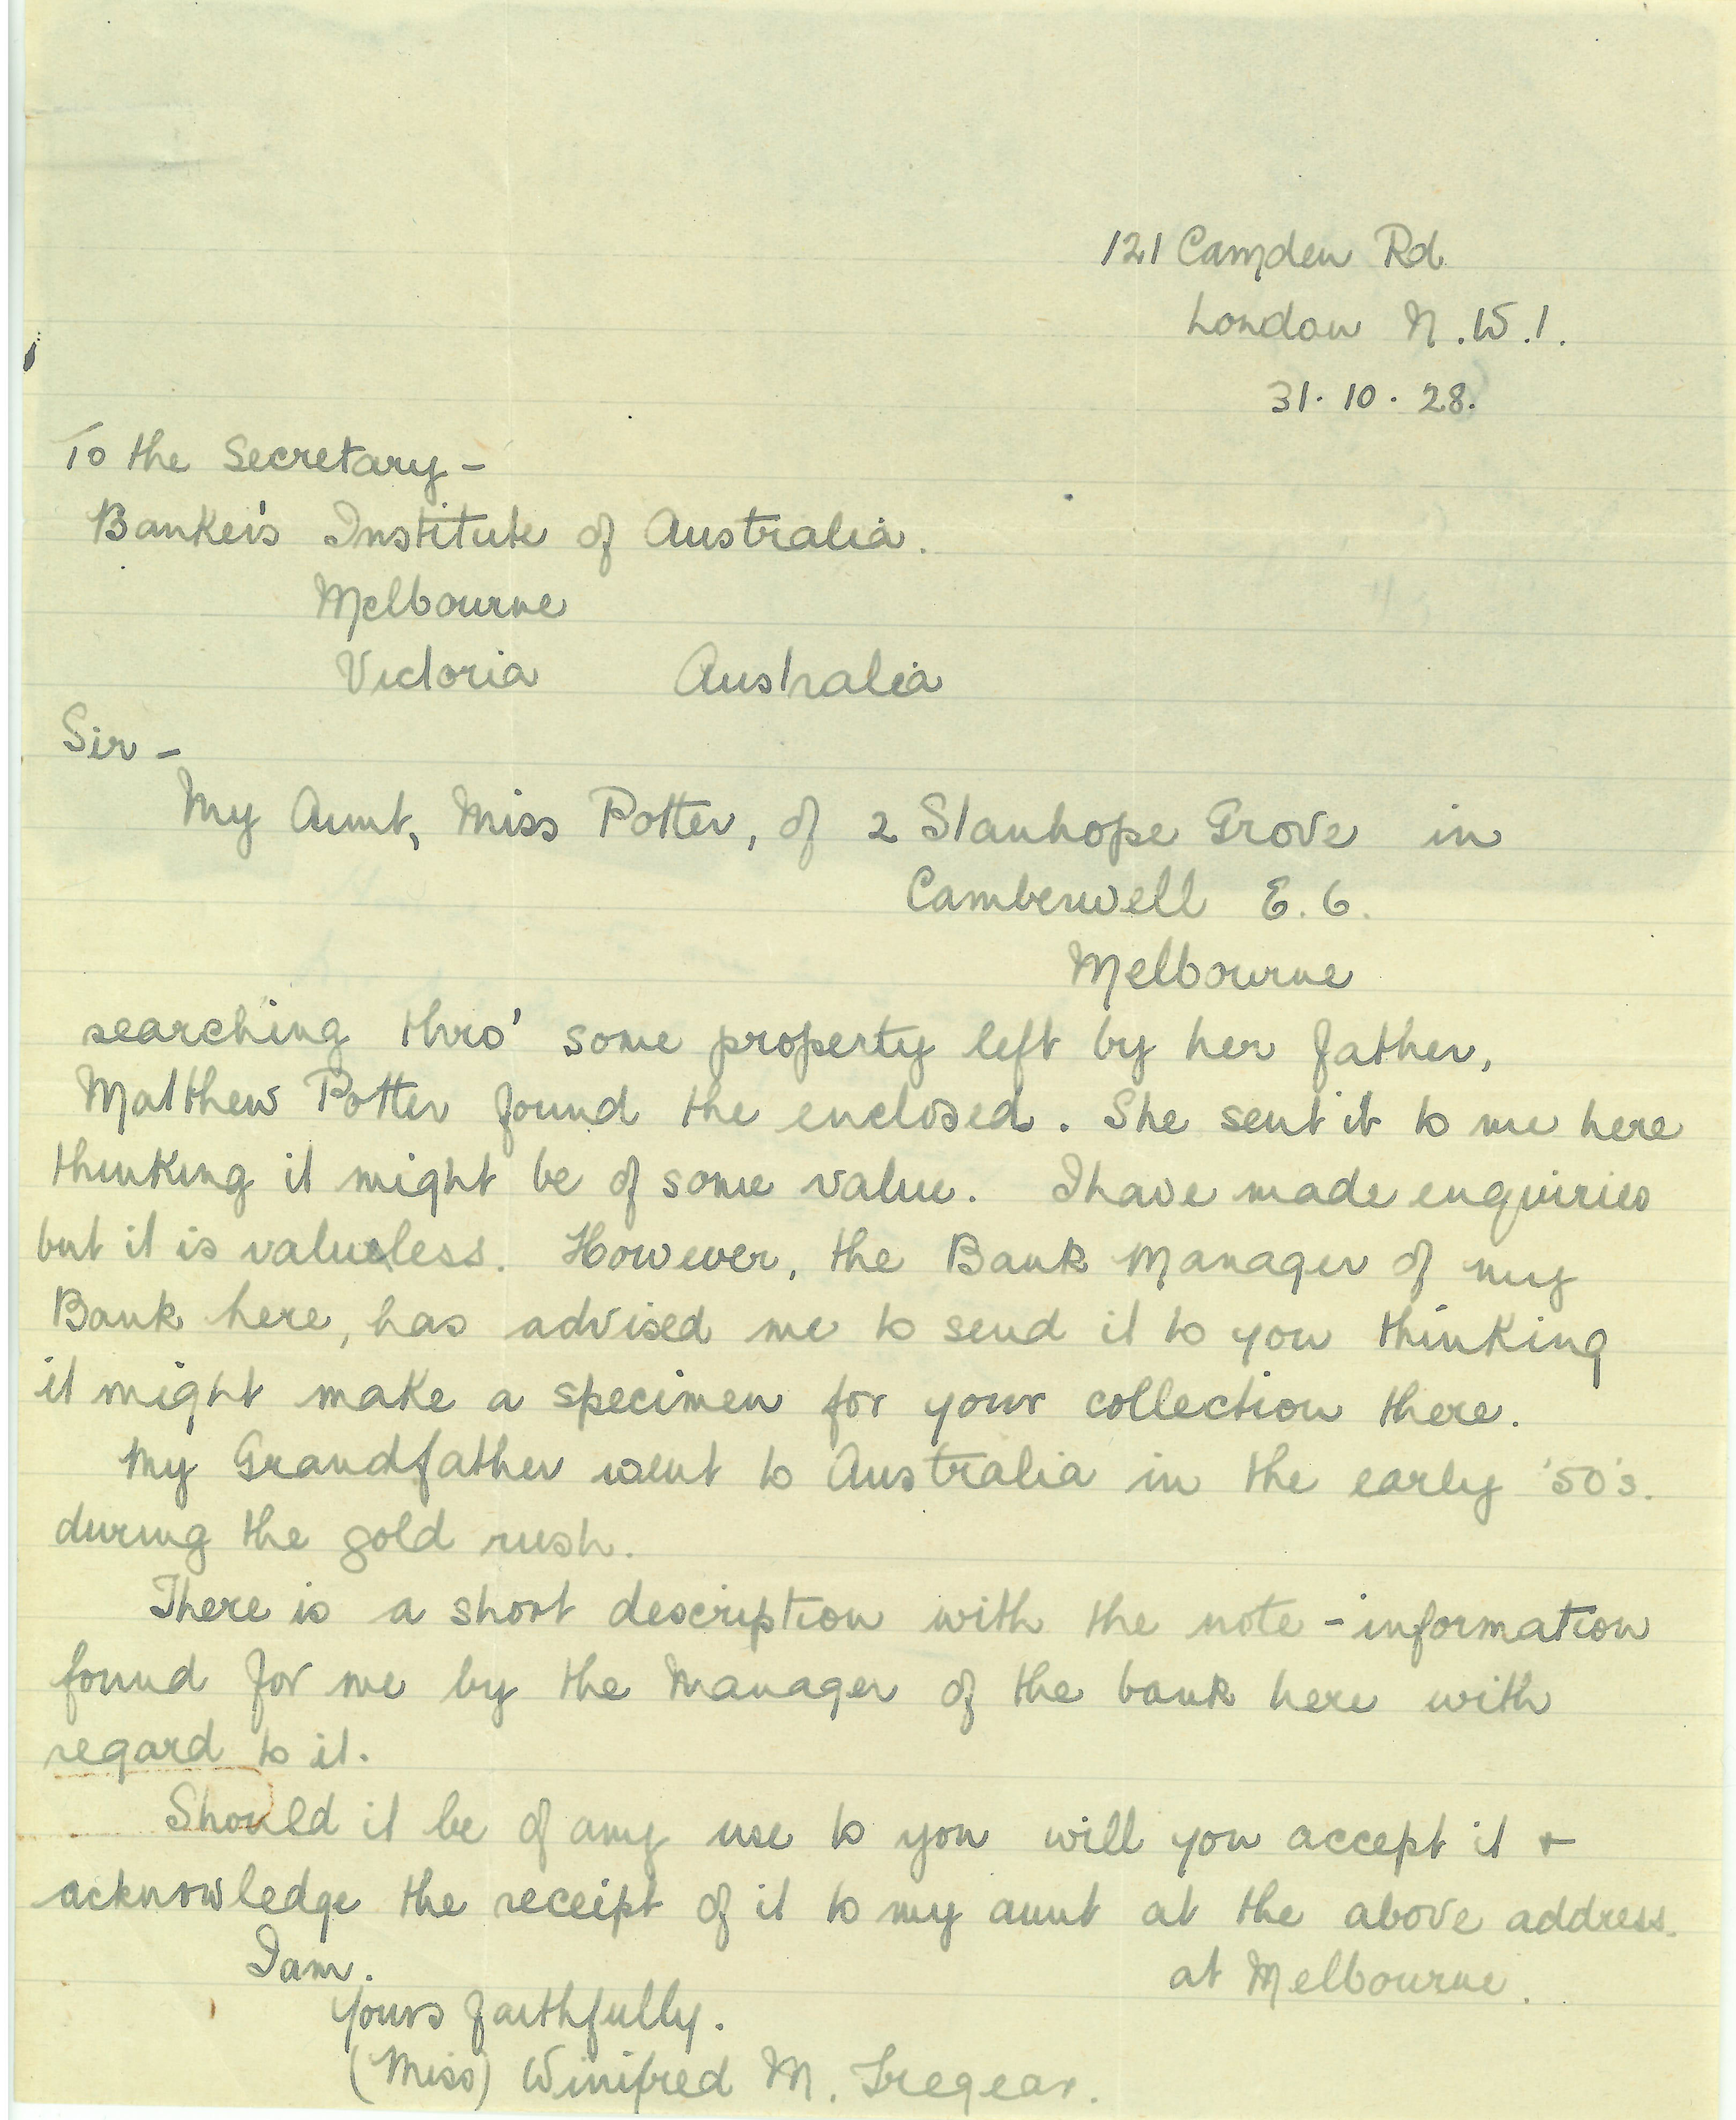 121 Camden Rd
London N.W.1.
31.10.28.
To the Secretary -
Banker's Institute of Australia.
Melbourne
Victoria Australia
Sir -
My Aunt, Miss Potter, of 2 Stanhope Grove in
Camberwell E.6.
Melbourne
searching thro' some property left by her father,
Matthew Potter found the enclosed. She sent it to me here
thinking it might be of some value. I have made enquiries
but it is valueless. However, the Bank Manager of my
Bank here, has advised me to send it to you thinking
it might make a specimen for your collection there.
My Grandfather went to Australia in the early '50's.
during the gold rush.
There is a short description with the note - information
found for me by the Manager of the bank here with
regard to it.
Should it be of any use to you will you accept it +
acknowledge the receipt of it to my aunt at the above address.
at Melbourne.
I am.
Yours faithfully.
(Miss) Winifred M. Tregear.